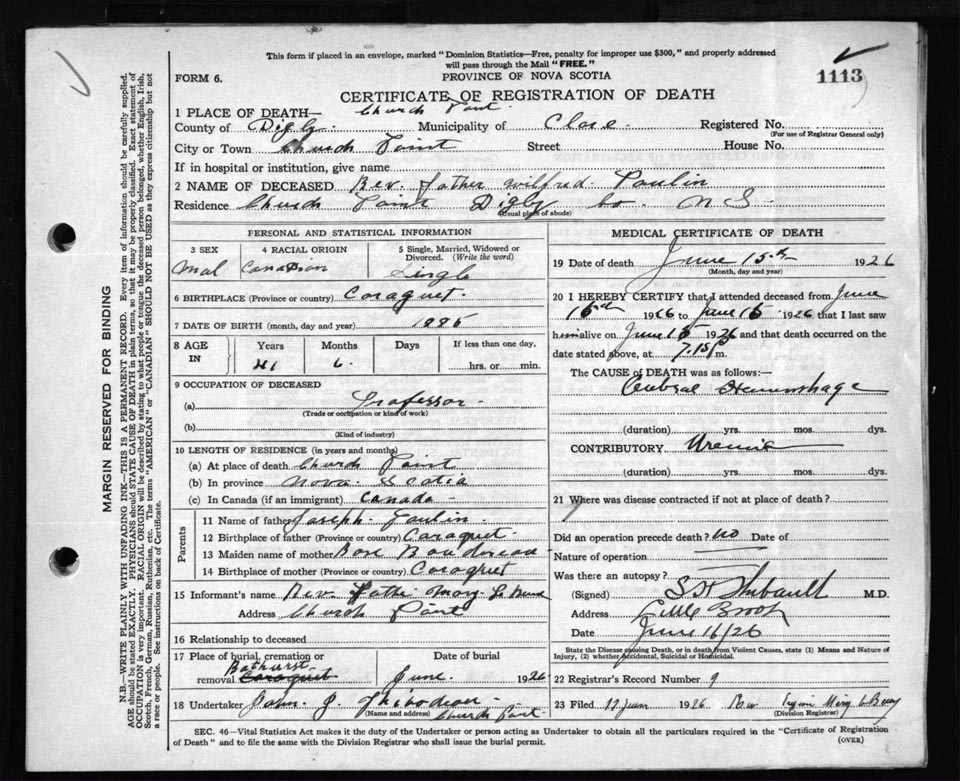 This form if placed in an envelope, marked "Dominion Statistics—Free, penalty for improper use $300," and properly addressed
will pass through the Mail "FREE."
FORM 6.
PROVINCE OF NOVA SCOTIA
1113
CERTIFICATE OF REGISTRATION OF DEATH
1 PLACE OF DEATH— Church Point.
County of Digby. Municipality of Clare. Registered No.
(For use of Registrar General only)
City or Town Church Point Street House No.
If in hospital or institution, give name
2 NAME OF DECEASED Rev. Father Wilfred Paulin
Residence Church Point Digby Co. N S
(Usual place of abode)
PERSONAL AND STATISTICAL INFORMATION
3 SEX 4 RACIAL ORIGIN 5 Single, Married, Widowed or Divorced. (Write the word)
Mal Canadian Single
6 BIRTHPLACE (Province or country) Caraquet.
7 DATE OF BIRTH (month, day and year) 1885
8 AGE IN Years Months Days If less than one day,
41 6. hrs. or min.
9 OCCUPATION OF DECEASED
(a) Professor
(Trade or occupation or kind of work)
(b)
(Kind of industry)
10 LENGTH OF RESIDENCE (in years and months)
(a) At place of death Church Point
(b) In province Nova Scotia
(c) In Canada (if an immigrant) Canada
Parents
11 Name of father Joseph Paulin
12 Birthplace of father (Province or country) Caraquet.
13 Maiden name of mother Rose Boudreau
14 Birthplace of mother (Province or country) Caraquet
15 Informant's name Rev. Father Mary
Address Church Point
16 Relationship to deceased
17 Place of burial, cremation or removal Bathurst Caraquet Date of burial June. 1926
18 Undertaker John J. Thibodeau
(Name and address) Church Point
MEDICAL CERTIFICATE OF DEATH
19 Date of death June 15th 1926
(Month, day and year)
20 I HEREBY CERTIFY that I attended deceased from June
15th 1926 to June 15 1926 that I last saw
him alive on June 15 1926 and that death occurred on
date stated above, at 7.15 P m.
The CAUSE of DEATH was as follows:—
Cerebral Hemorrhage
(duration) yrs. mos. dys.
CONTRIBUTORY Uremia
(duration) yrs. mos. dys.
21 Where was disease contracted if not at place of death?
Did an operation precede death? No Date of
Nature of operation
Was there an autopsy?
(Signed) Thibault M.D.
Address Little Brook
Date June 16/26
State the Disease causing Death, or in death from Violent Causes, state (1) Means and Nature of
Injury, (2) whether Accidental, Suicidal or Homicidal.
22 Registrar's Record Number 9
23 Filed 17 June 1926 Rev
(Division Registrar)
SEC. 46—Vital Statistics Act makes it the duty of the Undertaker or person acting as Undertaker to obtain all the particulars required in the "Certificate of Registration
of Death" and to file the same with the Division Registrar who shall issue the burial permit.
(OVER)
MARGIN RESERVED FOR BINDING
N.B.—WRITE PLAINLY WITH UNFADING INK—THIS IS A PERMANENT RECORD. Every item of information should be carefully supplied.
AGE should be stated EXACTLY. PHYSICIANS should STATE CAUSE OF DEATH in plain terms, so that it may be properly classified. Exact statement of
OCCUPATION is very important. RACIAL ORIGIN will be described by stating to what people or tongue the deceased person belonged, whether English, Irish,
Scotch, French, German, Russian, Ruthenian, etc. The terms "AMERICAN" or "CANADIAN" SHOULD NOT BE USED as they express citizenship but not
a race or people. See instructions on back of Certificate.